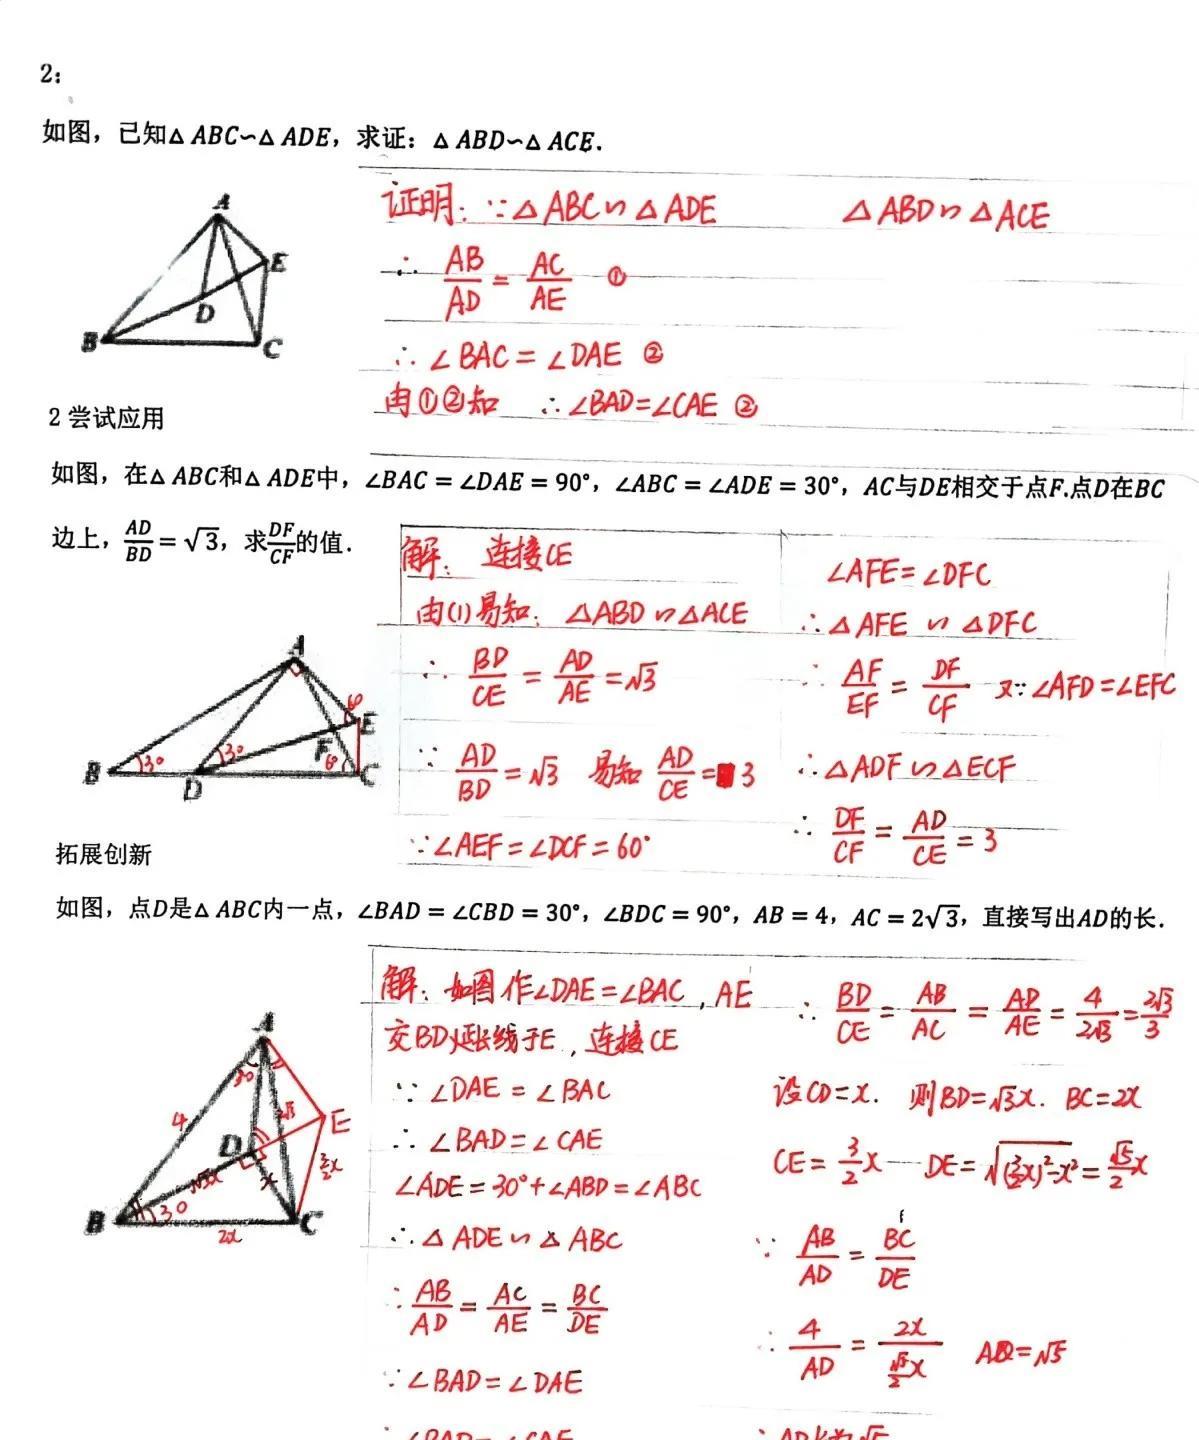 2:
如图，已知△ ABC∽△ ADE，求证：△ ABD∽△ ACE.
证明：∵△ABC∽△ADE
△ABD∽△ACE
∴ AB/AD = AC/AE ①
∴∠BAC=∠DAE ②
由①②知 ∴∠BAD=∠CAE ②
A
E
D
B
C
2 尝试应用
如图，在△ ABC和△ ADE中，∠BAC = ∠DAE = 90°，∠ABC = ∠ADE = 30°，AC与DE相交于点F.点D在BC
边上，AD/BD = √3，求DF/CF的值.
解：连接CE
由(1)易知：△ABD∽△ACE
∴ BD/CE = AD/AE = √3
∵ AD/BD = √3 易知 AD/CE = 3
∵∠AEF=∠DCF=60°
∠AFE=∠DFC
∴△AFE∽△DFC
∴ AF/EF = DF/CF 又∵∠AFD=∠EFC
∴△ADF∽△ECF
∴ DF/CF = AD/CE = 3
A
60
E
F
B
30
30
60
D
C
拓展创新
如图，点D是△ ABC内一点，∠BAD = ∠CBD = 30°，∠BDC = 90°，AB = 4，AC = 2√3，直接写出AD的长.
解：如图作∠DAE=∠BAC，AE
交BD延长线于E，连接CE
∵∠DAE=∠BAC
∴∠BAD=∠CAE
∠ADE=30°+∠ABD=∠ABC
∴△ADE∽△ABC
∴ AB/AD = AC/AE = BC/DE
∵∠BAD=∠DAE
∴∠BAD=∠CAE
∴ BD/CE = AB/AC = AD/AE = 4/2√3 = 2√3/3
设CD=x. 则BD=√3x. BC=2x
CE=3/2x DE=√((3/2x)²-x²)=√5/2x
∵ AB/AD = BC/DE
∴ 4/AD = 2x/(√5/2x) AD=√5
∴AD长为√5
A
30
4
2√3
E
D
3/2x
√3x
x
B
30
C
2x